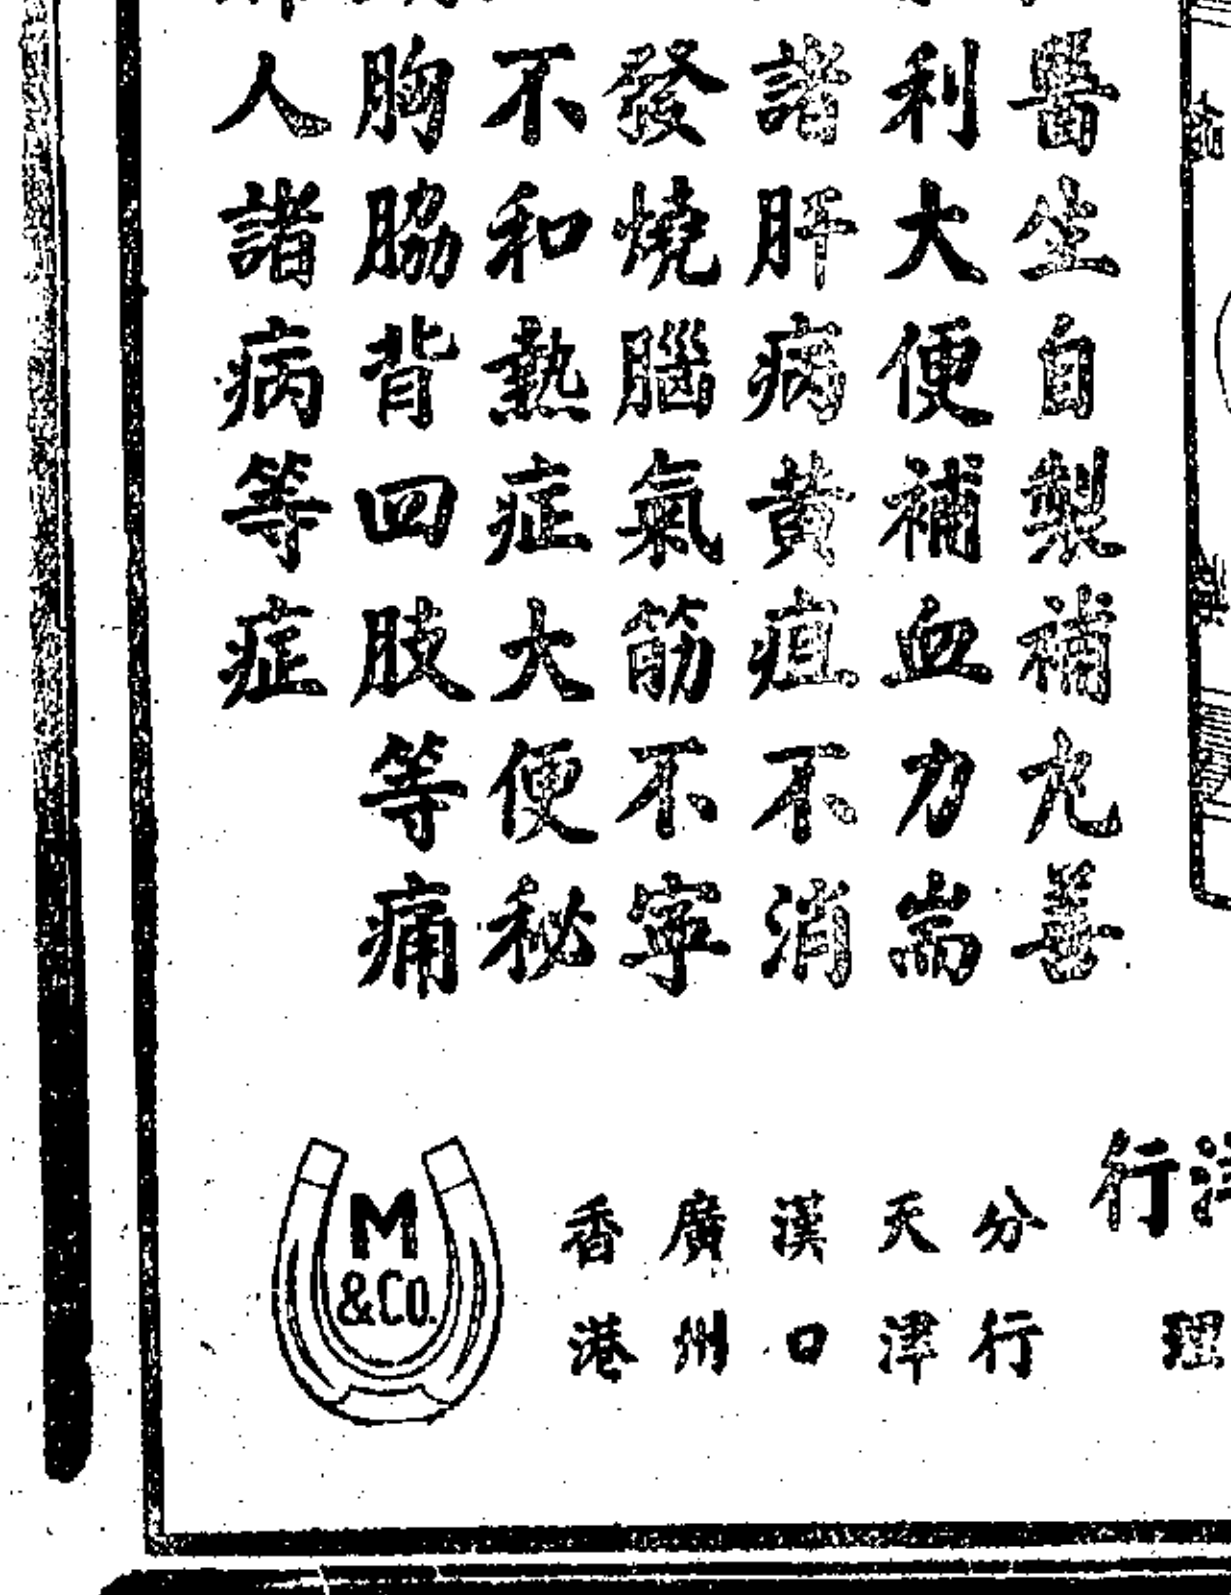 醫生自製補丸善
利大便補血力耑
諸肝病黃疸不消
發燒腦氣筋不寧
不和熱症大便秘
胸脇背四肢等痛
人諸病等症
行
理
分行
天津
漢口
廣州
香港
M
&Co.